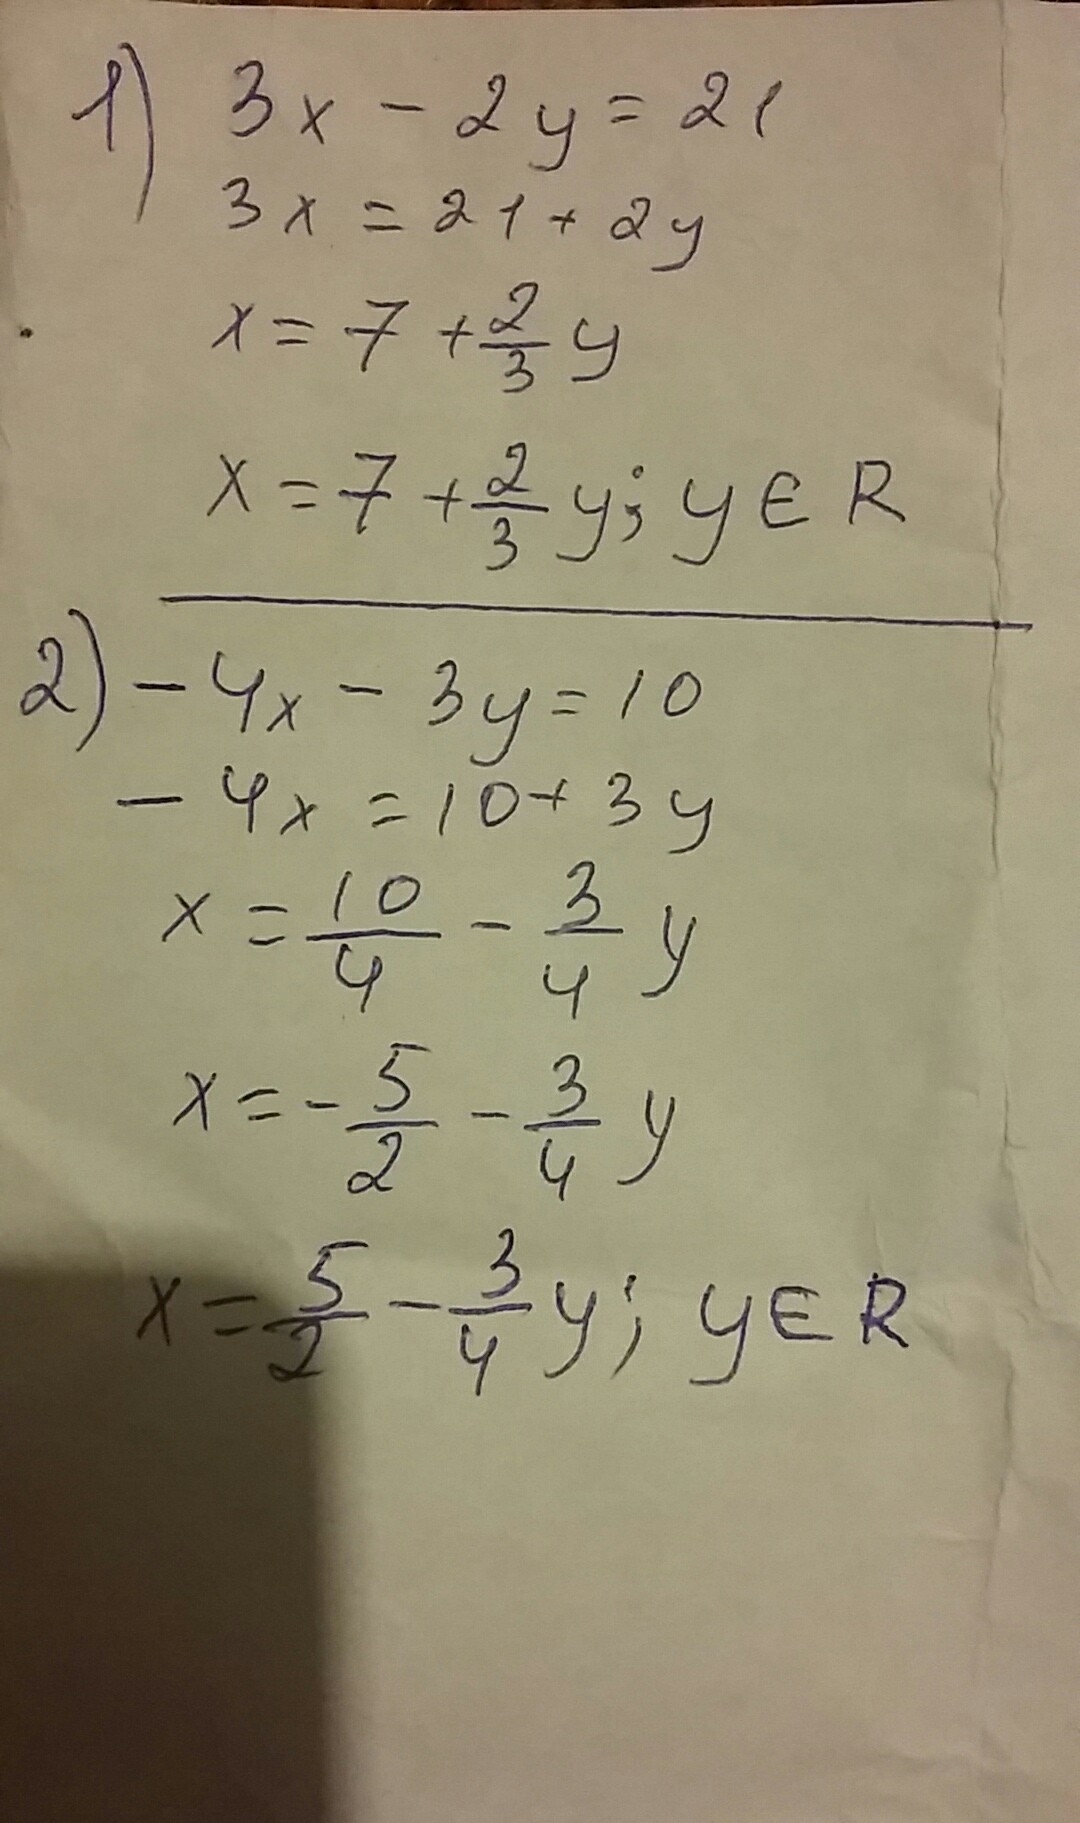 1) 3x - 2y = 21
3x = 21 + 2y
x = 7 + 2/3 y
x = 7 + 2/3 y; y ∈ R
2) - 4x - 3y = 10
- 4x = 10 + 3y
x = 10/4 - 3/4 y
x = - 5/2 - 3/4 y
x = 5/2 - 3/4 y; y ∈ R